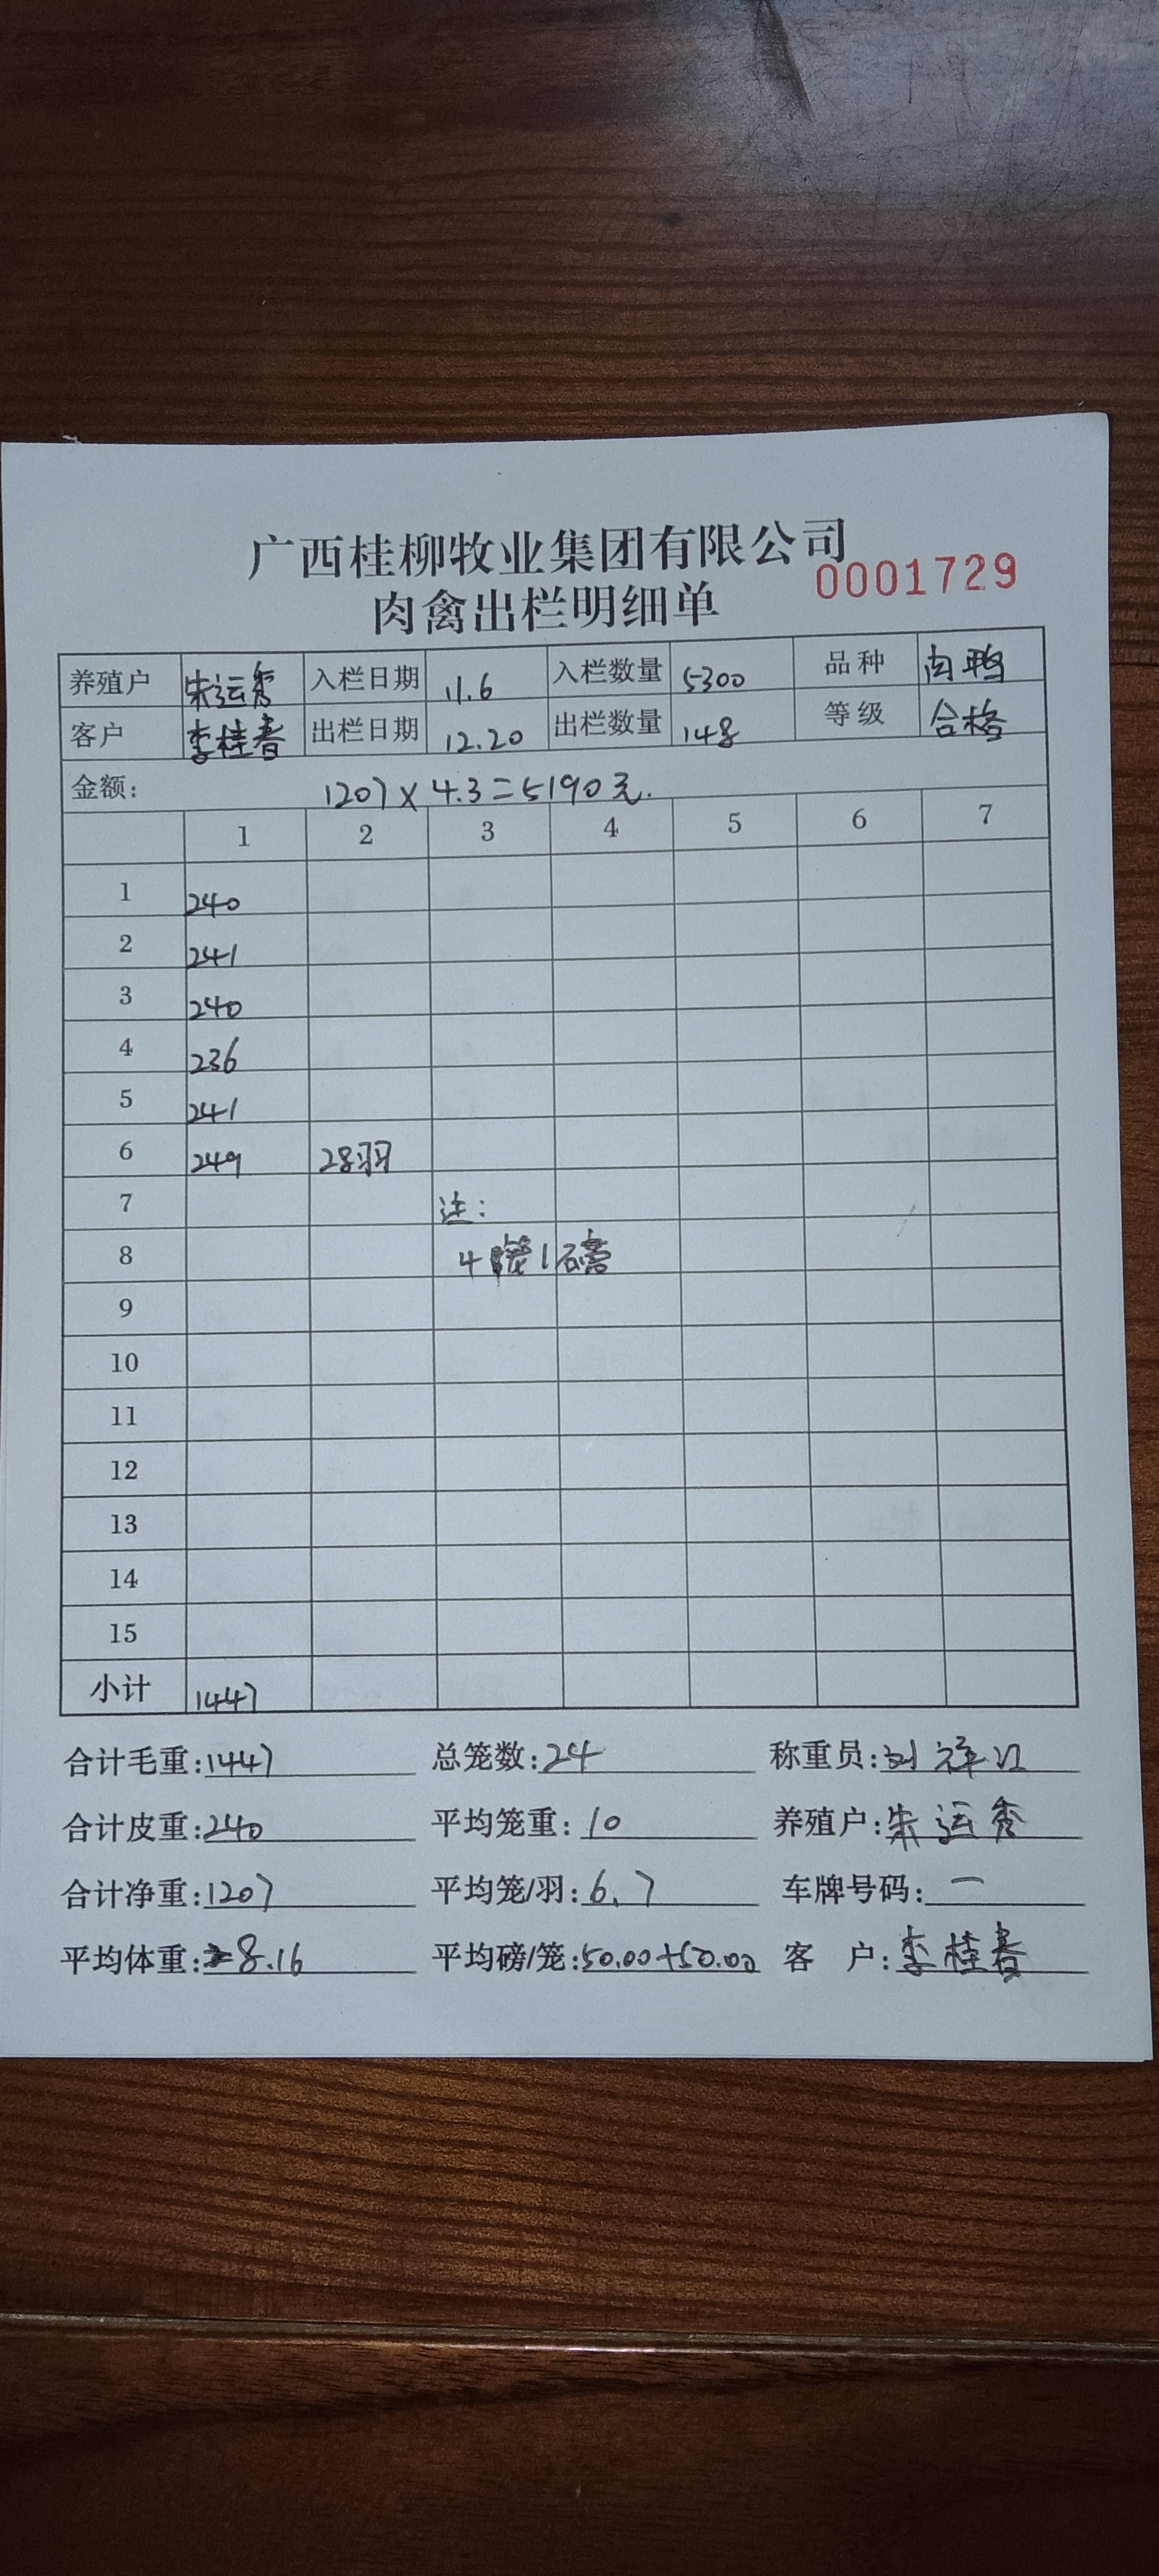 广西桂柳牧业集团有限公司
0001729
肉禽出栏明细单
养殖户 朱运秀 入栏日期 11.6 入栏数量 5300 品种 肉鸭
客户 李桂春 出栏日期 12.20 出栏数量 148 等级 合格
金额: 1207×4.3=5190元.
1 2 3 4 5 6 7
1 240
2 241
3 240
4 236
5 241
6 249 28羽
7 注:
8 4笼1磅
9
10
11
12
13
14
15
小计 1447
合计毛重:1447 总笼数:24 称重员:刘祥江
合计皮重:240 平均笼重:10 养殖户:朱运秀
合计净重:1207 平均笼/羽:6.7 车牌号码:一
平均体重:8.16 平均磅/笼:50.00+50.00 客 户:李桂春